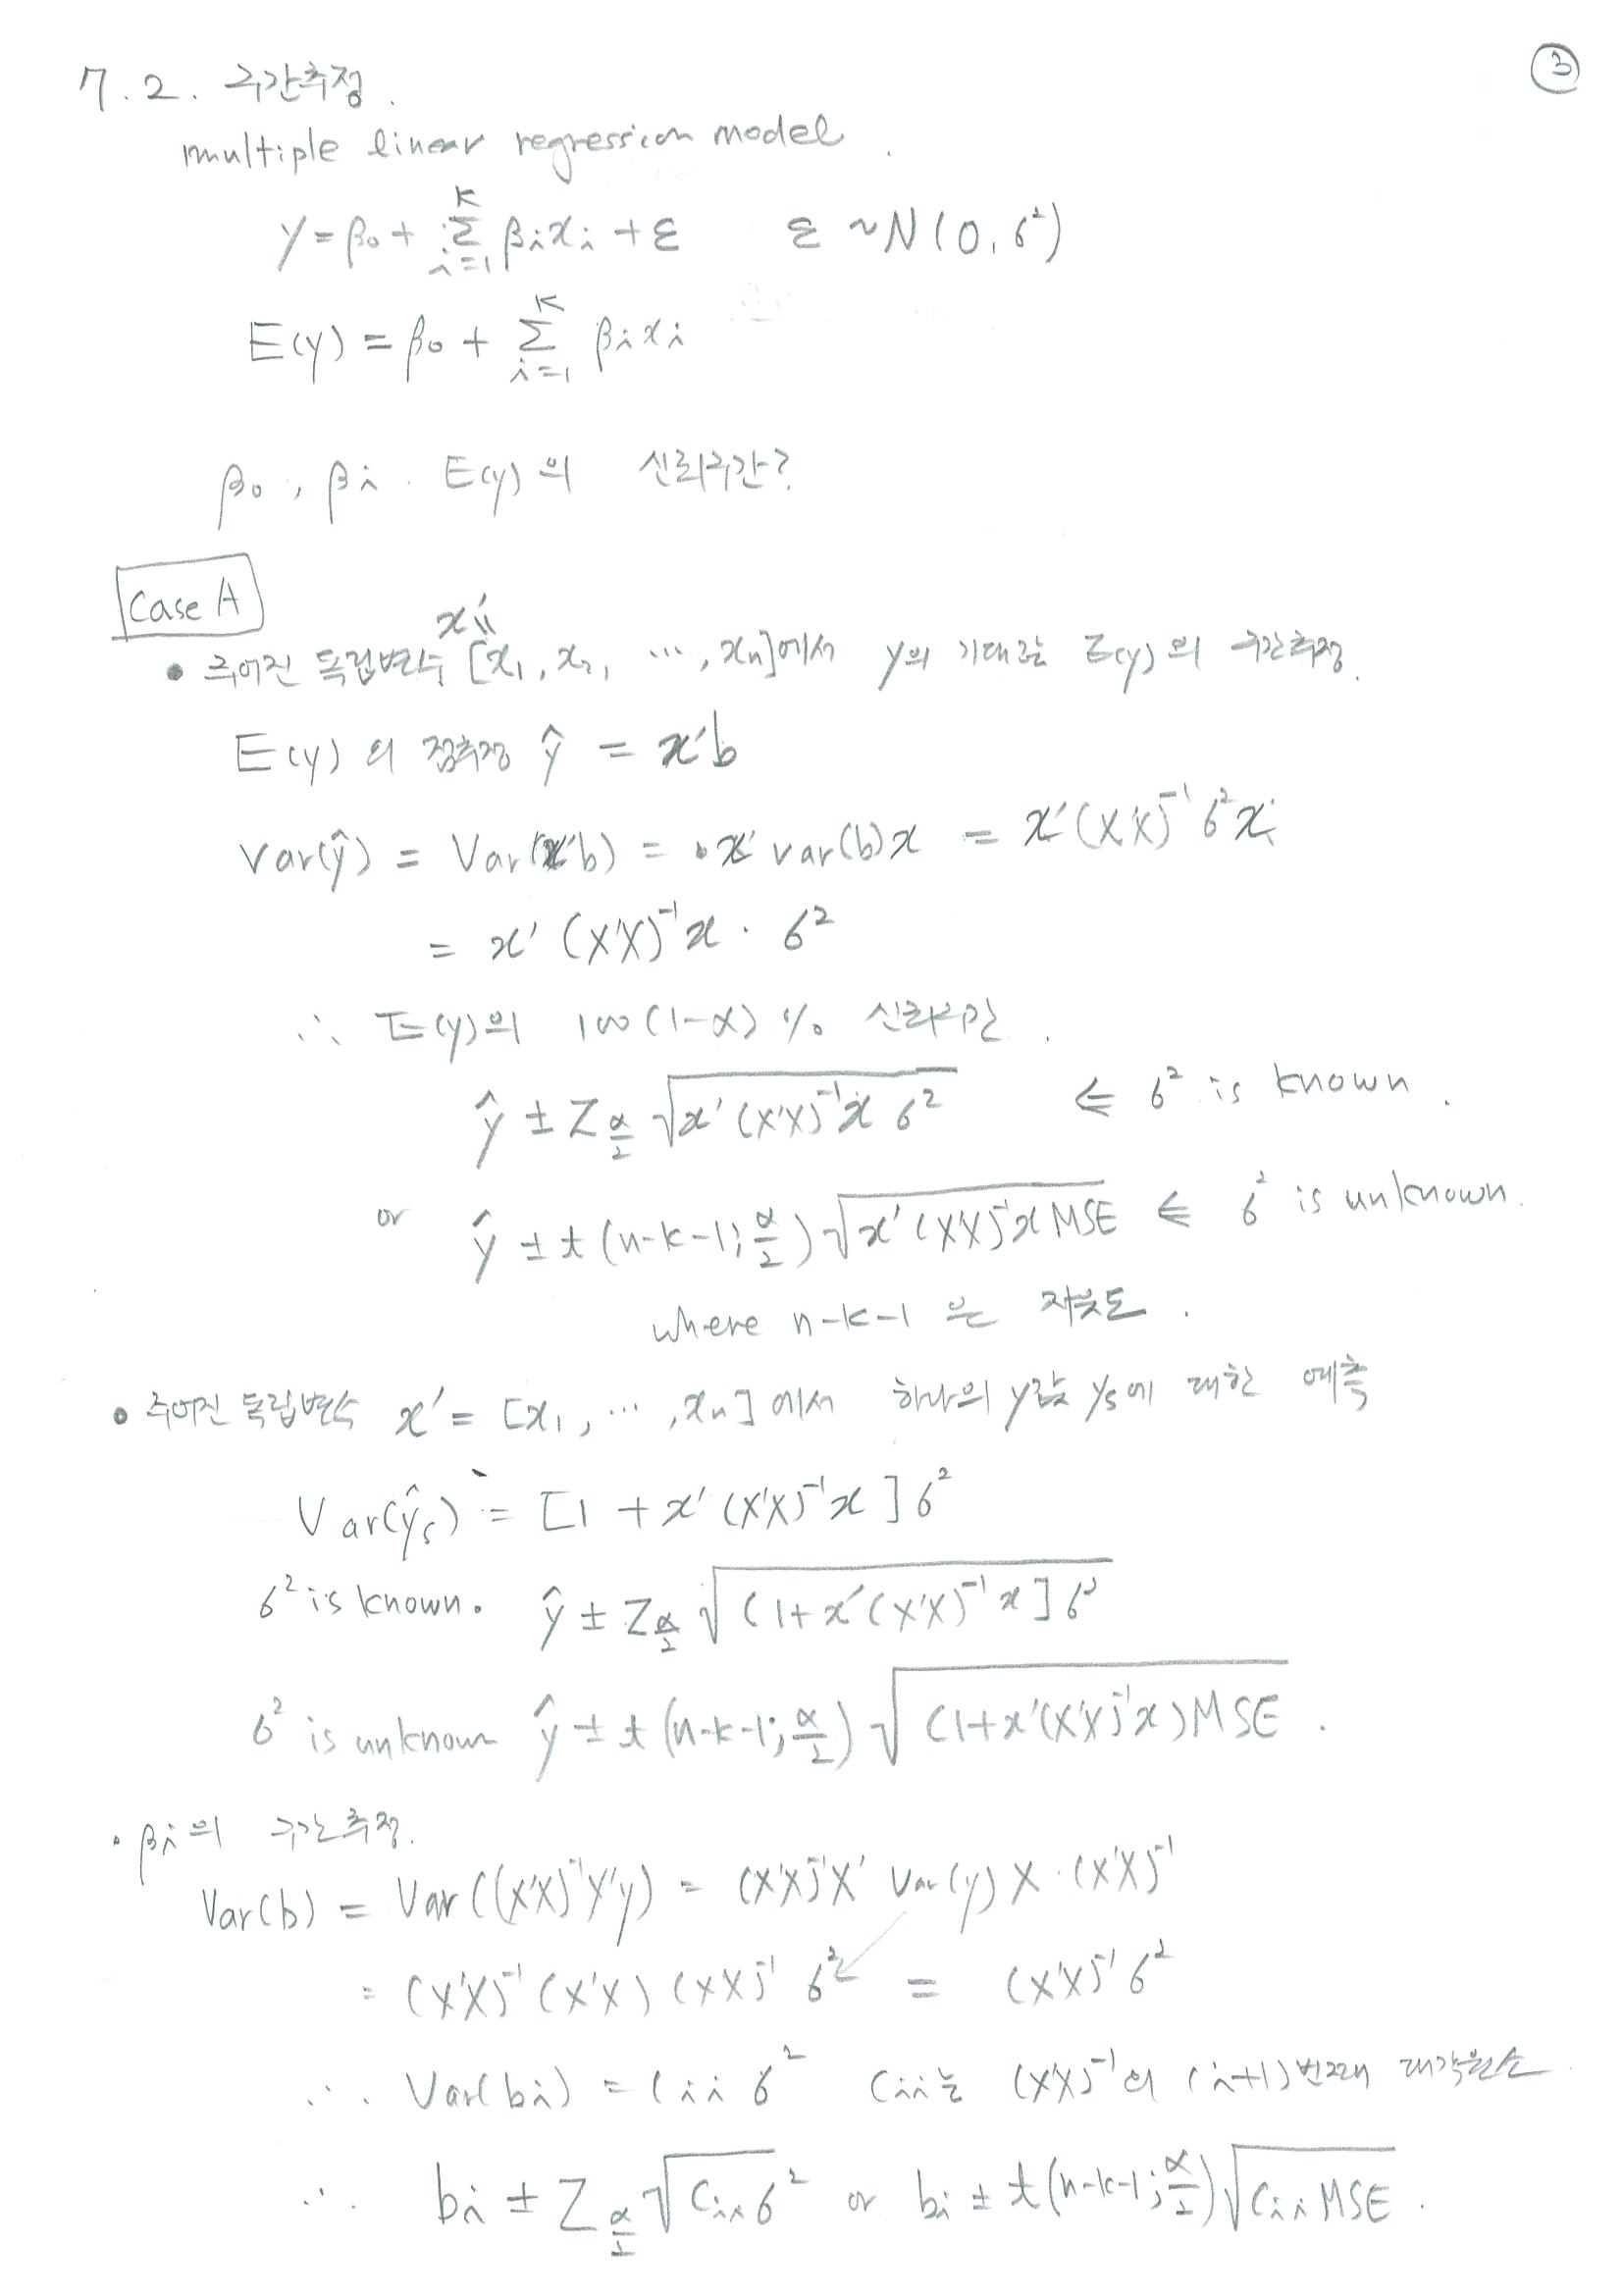 ③
7.2. 구간추정.
multiple linear regression model.
y = β₀ + Σ_{i=1}^{K} βᵢxᵢ + ε    ε ~ N(0, σ²)
E(y) = β₀ + Σ_{i=1}^{K} βᵢxᵢ
β₀, βᵢ. E(y)의 신뢰구간?
Case A
x′ "
• 주어진 독립변수 [x₁, x₂, ⋯, xₙ]에서 y의 기대값 E(y)의 구간추정.
E(y)의 점추정 ŷ = x′b
Var(ŷ) = Var(x′b) = x′ var(b)x = x′(X′X)⁻¹σ²x
= x′(X′X)⁻¹x · σ²
∴ E(y)의 100(1-α)% 신뢰구간.
ŷ ± Z_{α/2} √(x′(X′X)⁻¹x σ²) ⇐ σ² is known.
or ŷ ± t(n-k-1; α/2) √(x′(X′X)⁻¹x MSE) ⇐ σ² is unknown.
where n-k-1 은 자유도.
• 주어진 독립변수 x′ = [x₁, ⋯, xₙ]에서 하나의 y값 yₛ에 대한 예측
Var(ŷₛ) = [1 + x′(X′X)⁻¹x]σ²
σ² is known. ŷ ± Z_{α/2} √((1+x′(X′X)⁻¹x]σ²)
σ² is unknown ŷ ± t(n-k-1; α/2) √((1+x′(X′X)⁻¹x)MSE).
• βᵢ의 구간추정.
Var(b) = Var((X′X)⁻¹X′y) = (X′X)⁻¹X′ Var(y) X·(X′X)⁻¹
= (X′X)⁻¹(X′X)(X′X)⁻¹σ² = (X′X)⁻¹σ²
∴ Var(bᵢ) = Cᵢᵢσ²    Cᵢᵢ는 (X′X)⁻¹의 (i+1)번째 대각원소.
∴ bᵢ ± Z_{α/2} √(Cᵢᵢσ²) or bᵢ ± t(n-k-1; α/2) √(Cᵢᵢ MSE).